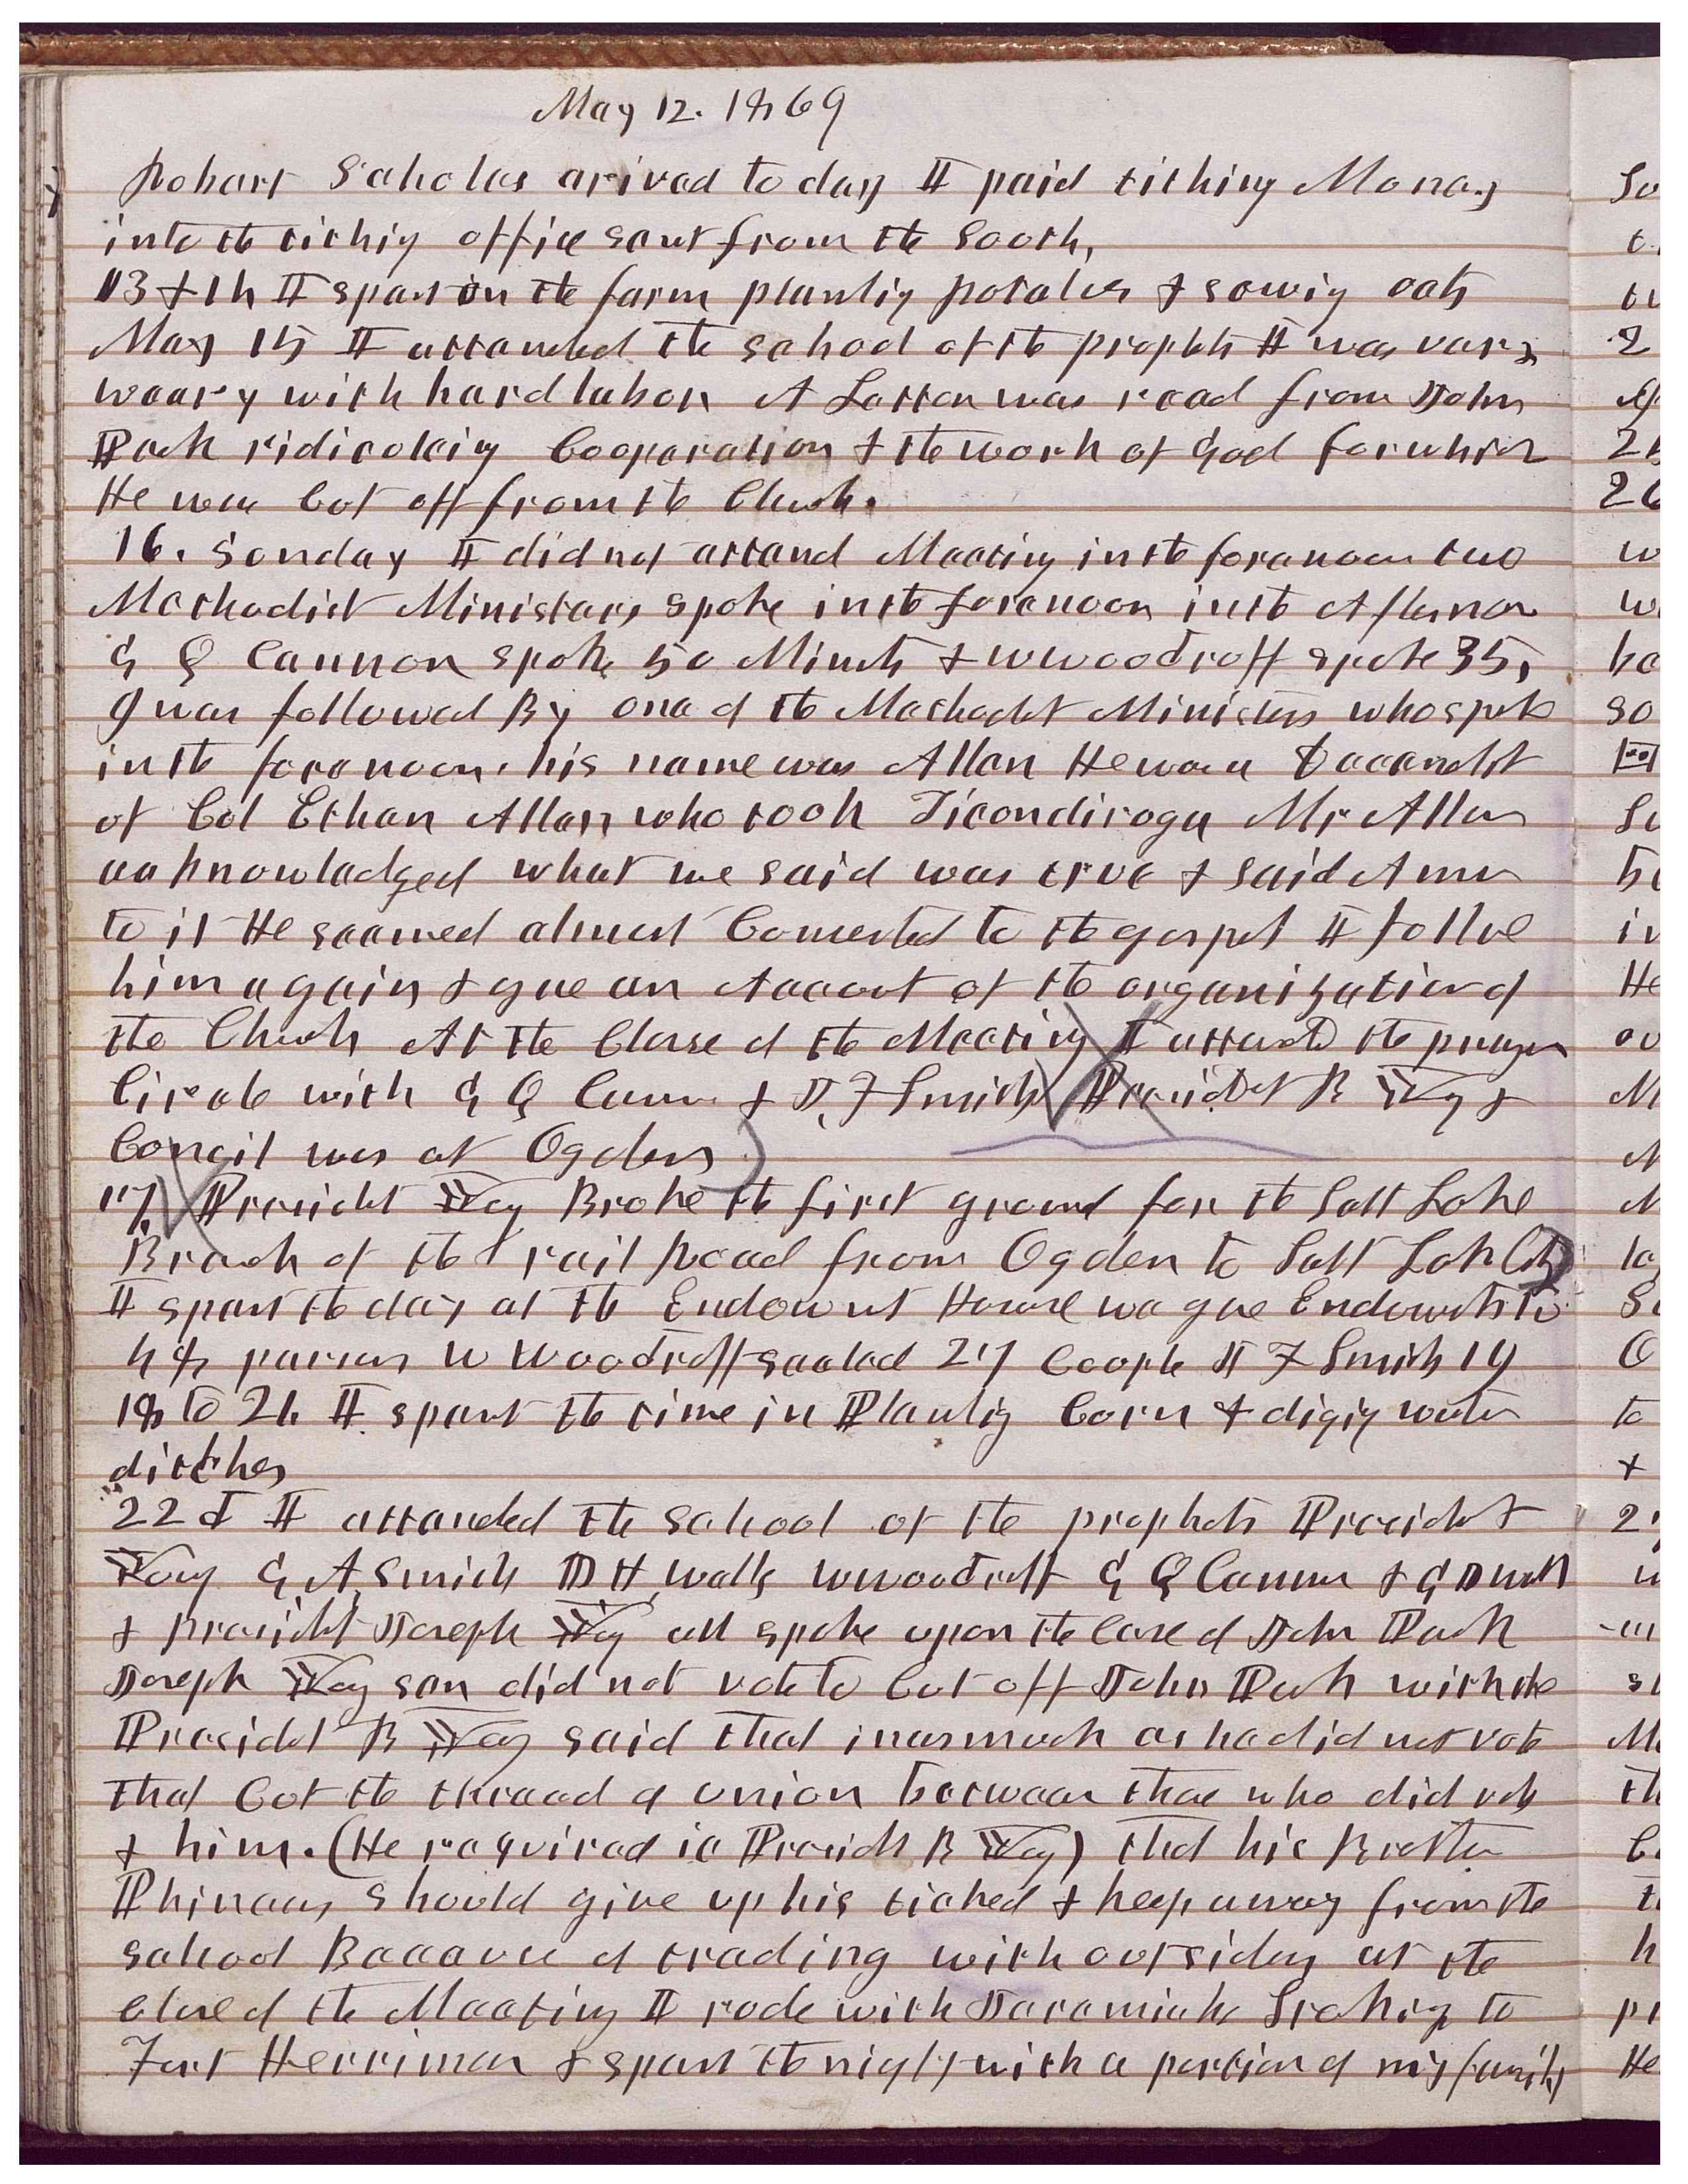 May 12. 1869
Robert Scholes arived to day I paid tithing Money
into the tithig office sent from the South,
13 & 14 I spent in the farm plantig potatoes & sowig oats
May 15 I attended the school of the prophets I was very
weary with hard labor A Letter was read from John
Pack ridiculeig Cooperation & the work of God for which
He was Cut off from the Church.
16. Sunday I did not attend Meeting in the forenoon two
Methodist Ministers spoke in the forenoon in the Afternoon
G Q Cannon spoke 50 Minuts & W Woodruff spoke 35,
& was followed By one of the Methodist Ministers who spoke
in the forenoon. his name was Allen He was a Decendet
of Col Ethan Allen who took Ticondiroga Mr Allen
acknowledged what we said was true & said Amen
to it He seemed almost Converted to the gospel I follwed
him again & gave an Account of the organization of
the Church At the Close of the Meeting I attended the prayer
Circle with G Q Cannon & J. F Smith President B Yg &
Council was at Ogden
17. Presidet Yg Broke the first ground for the Salt Lake
Branch of the rail Road from Ogden to Salt Lake City
I spent the day at the Endowmt House we gave Endowmts to
48 persons W Woodruff sealed 27 Couple J F Smith 19
18 to 21. I spent the time in Plantig Corn & digig water
ditches
22d I attended the school of the prophets Presidet
Yg G A Smith D H Wells W Woodruff G Q Cannon & G D Watt
& presidet Joseph Yg all spoke upon the Case of John Pack
Joseph Yg sen did not vote to Cut off John Pack with the
Presidet B Yg said that inasmuch as he did not vote
that Cut the thread of union between those who did vote
& him. (He required ie Presidt B Yg) that his Brother
Phineas should give up his ticked & keep away from the
school Because of trading with outsiders at the
Close of the Meeting I rode with Jeremiah to
Fort Herriman & spent the night with a portion of my family